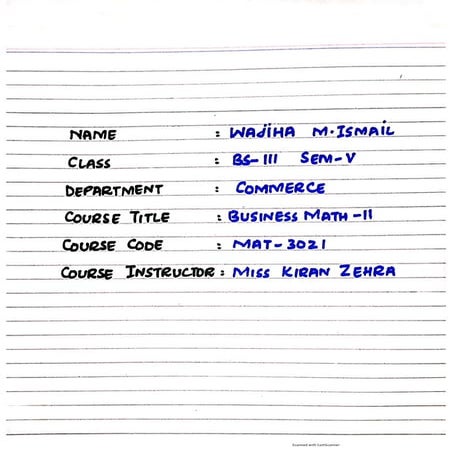 NAME : WAJIHA M. ISMAIL
CLASS : BS-III SEM-V
DEPARTMENT : COMMERCE
COURSE TITLE : BUSINESS MATH-II
COURSE CODE : MAT-3021
COURSE INSTRUCTOR : MISS KIRAN ZEHRA
Scanned with CamScanner